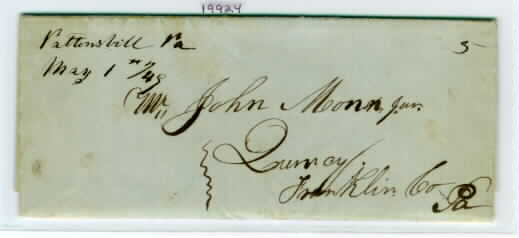 19924
Pattonsvill Pa
5
May 1st/49
Mr John Monn Jun.
Quincy
Franklin Co
Pa